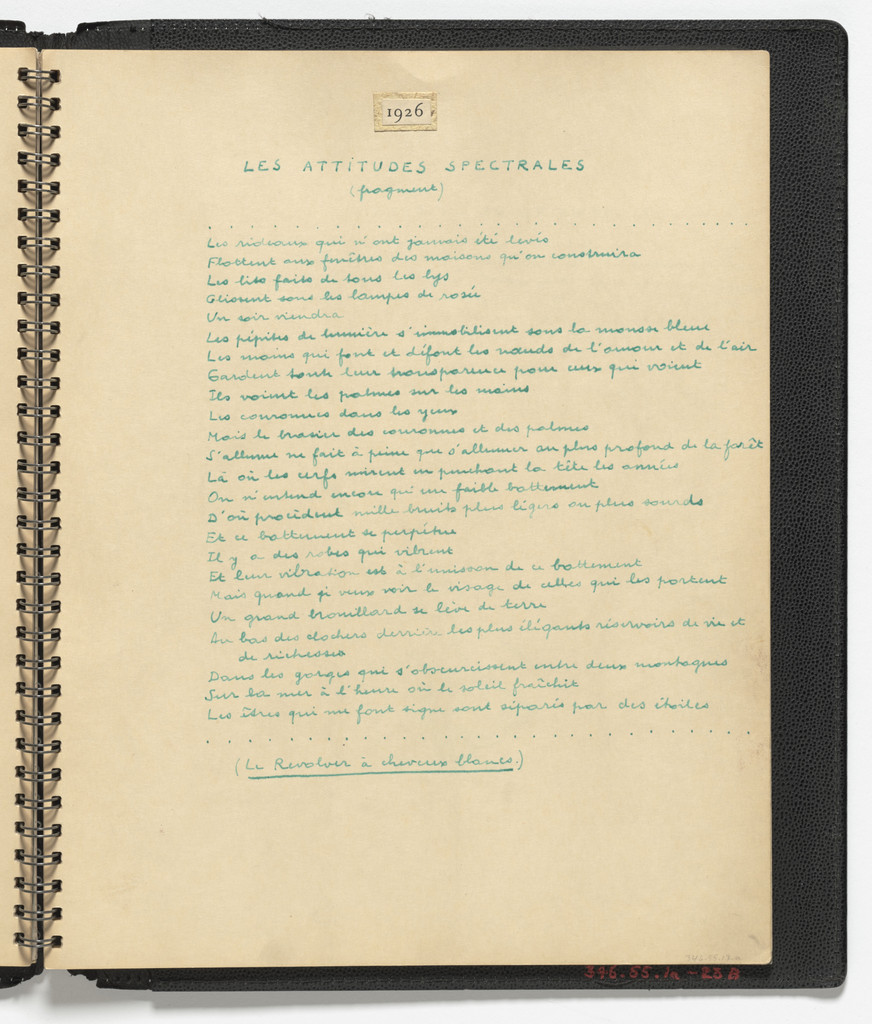 1926
LES ATTITUDES SPECTRALES
(fragment)
. . . . . . . . . . . . . . . . . . . . . . . . . . . . .
Les rideaux qui n'ont jamais été levés
Flottent aux fenêtres des maisons qu'on construira
Les lits faits de tous les lys
Glissent sous les lampes de rosée
Un soir viendra
Les pépites de lumière s'immobilisent sous la mousse bleue
Les mains qui font et défont les nœuds de l'amour et de l'air
Gardent toute leur transparence pour ceux qui voient
Ils voient les palmes sur les mains
Les couronnes dans les yeux
Mais le brasier des couronnes et des palmes
S'allume ne fait à peine que s'allumer au plus profond de la forêt
Là où les cerfs mirent en penchant la tête les années
On n'entend encore qu'un faible battement
D'où procèdent mille bruits plus légers ou plus sourds
Et ce battement se perpétue
Il y a des robes qui vibrent
Et leur vibration est à l'unisson de ce battement
Mais quand je veux voir le visage de celles qui les portent
Un grand brouillard se lève de terre
Au bas des clochers derrière les plus élégants réservoirs de vie et
de richesses
Dans les gorges qui s'obscurcissent entre deux montagnes
Sur la mer à l'heure où le soleil fraîchit
Les êtres qui me font signe sont séparés par des étoiles
. . . . . . . . . . . . . . . . . . . . . . . . . . . . .
(Le Revolver à cheveux blancs.)
396.55.1a-23A